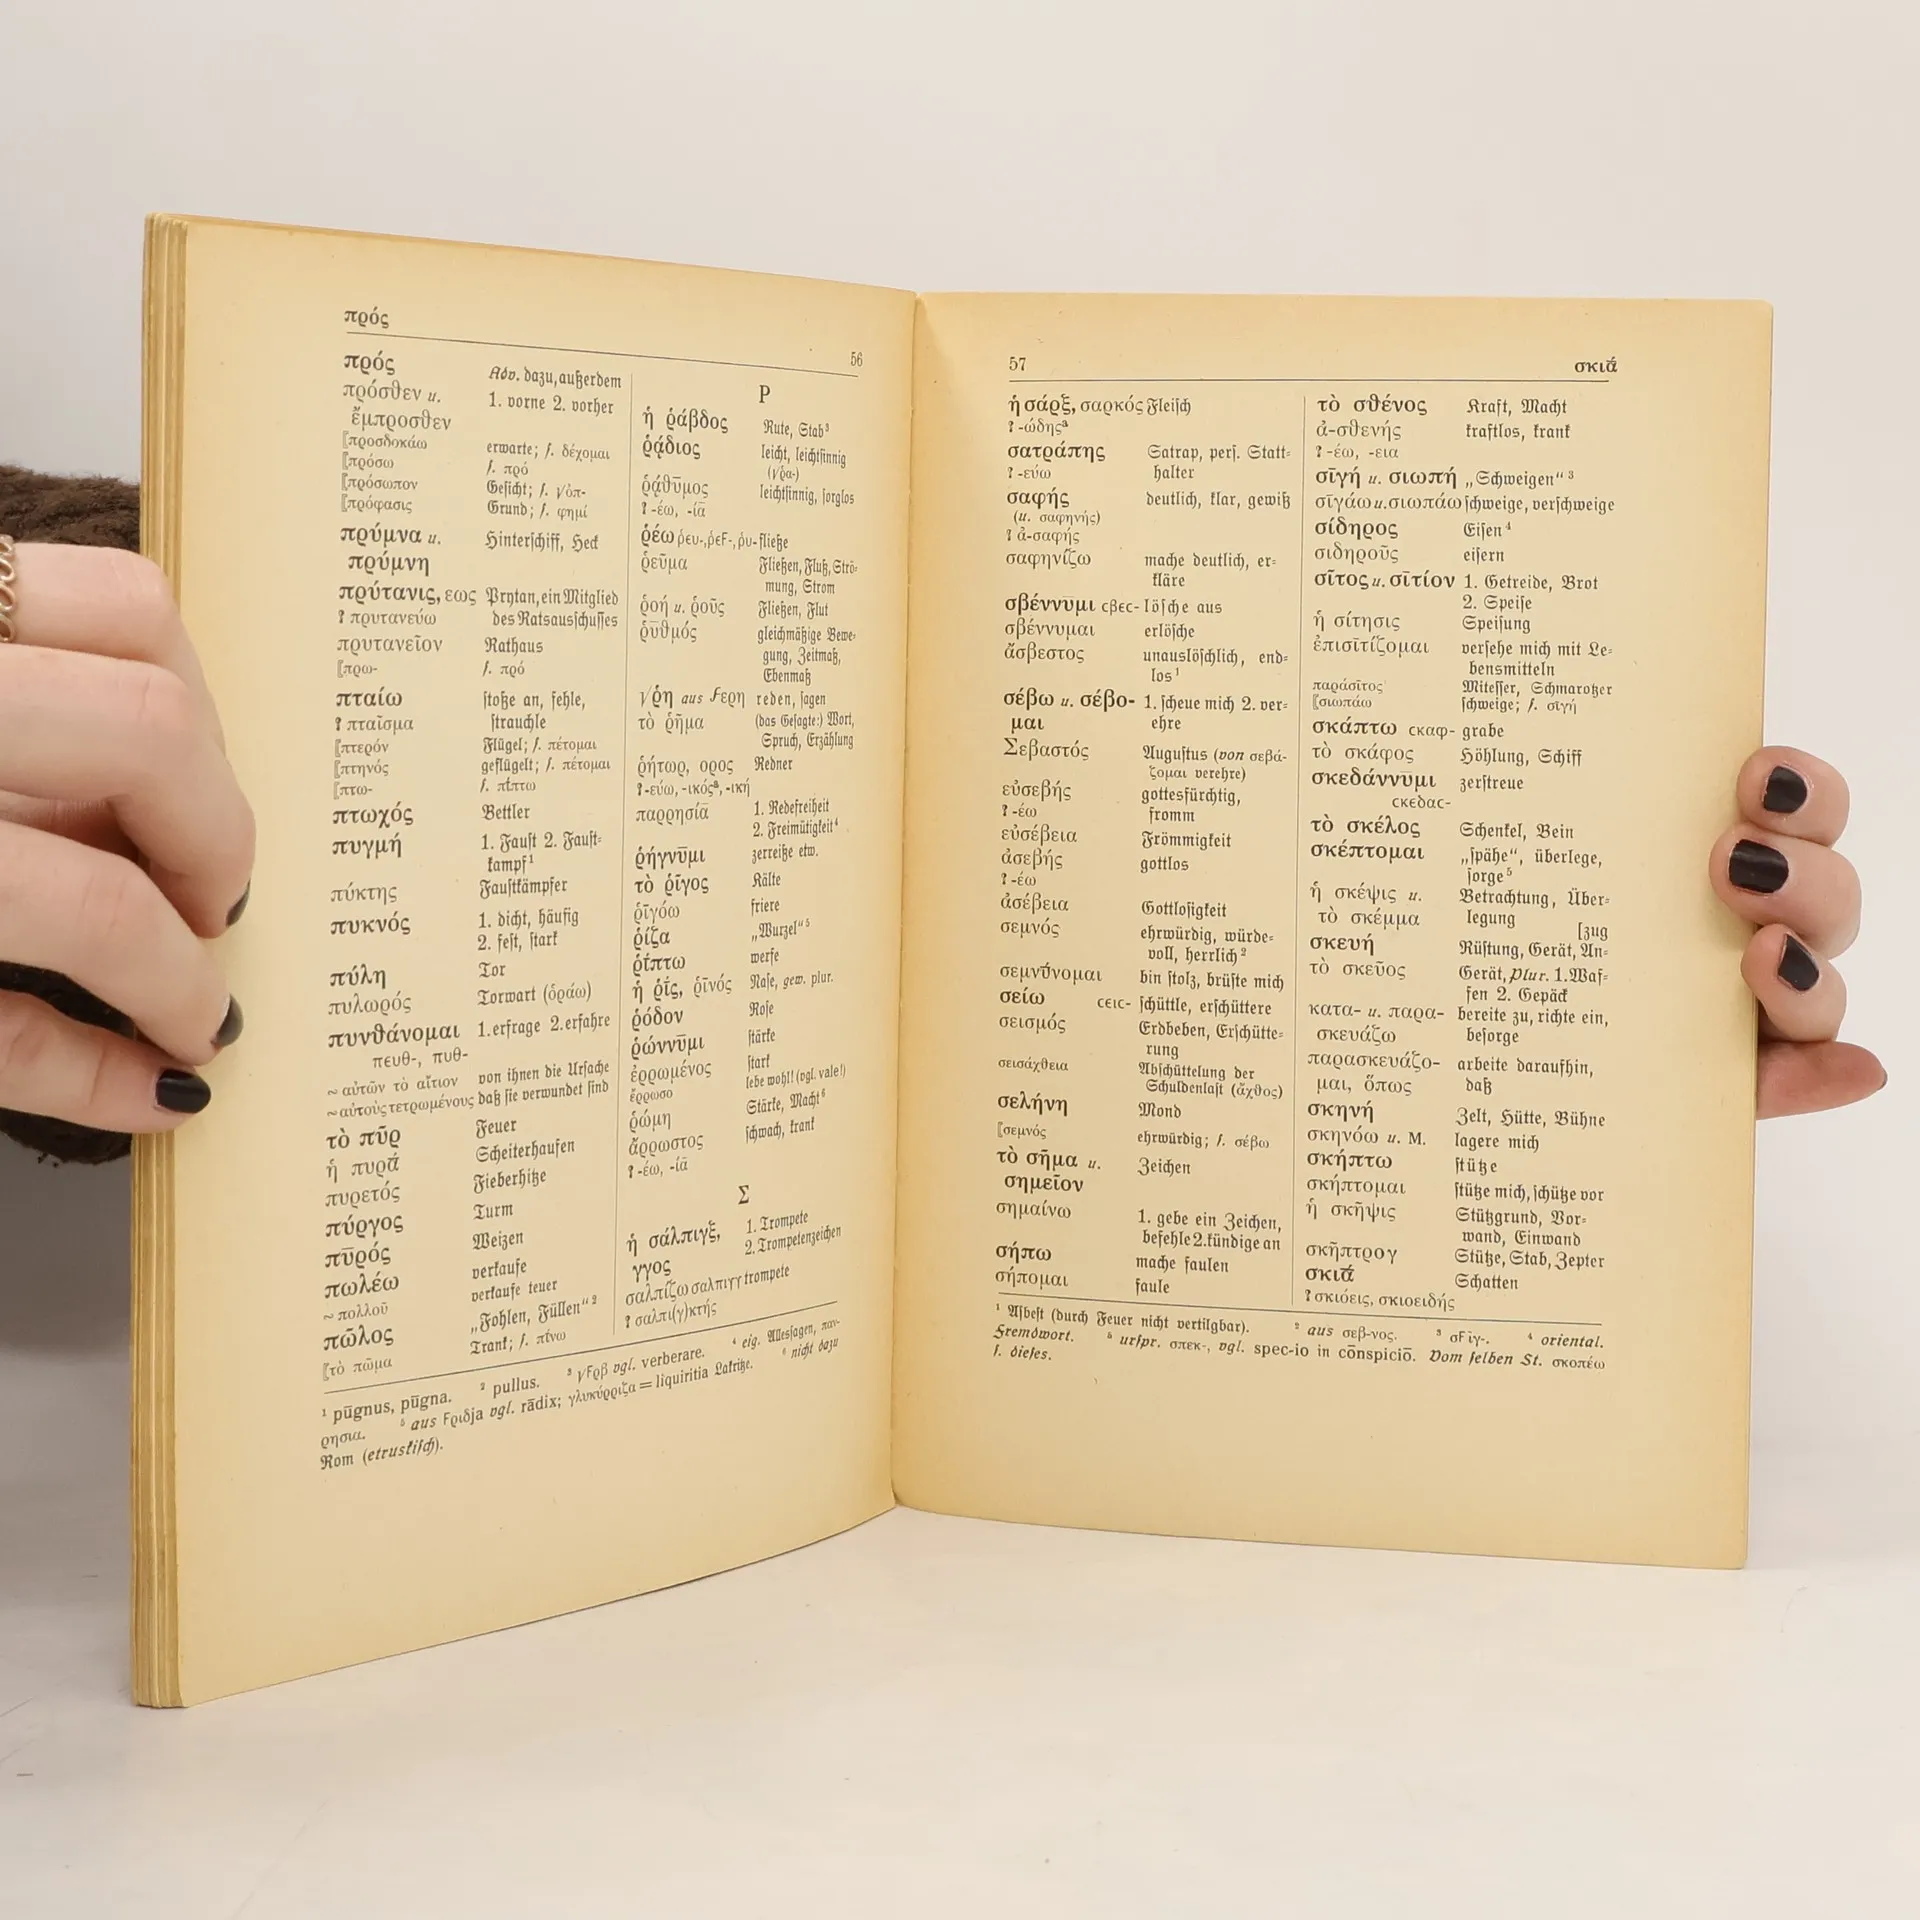 πρός
56
πρός Adv. dazu, außerdem
πρόσθεν u. 1. vorne 2. vorher
ἔμπροσθεν
[προσδοκάω erwarte; s. δέχομαι
[πρόσω s. πρό
[πρόσωπον Gesicht; s. √ὀπ-
[πρόφασις Grund; s. φημί
πρύμνα u. Hinterschiff, Heck
πρύμνη
πρύτανις, εως Prytan, ein Mitglied
? πρυτανεύω des Ratsausschusses
πρυτανεῖον Rathaus
[πρω- s. πρό
πταίω stoße an, fehle,
? πταῖσμα strauchle
[πτερόν Flügel; s. πέτομαι
[πτηνός geflügelt; s. πέτομαι
[πτω- s. πίπτω
πτωχός Bettler
πυγμή 1. Faust 2. Faust-
kampf¹
πύκτης Faustkämpfer
πυκνός 1. dicht, häufig
2. fest, stark
πύλη Tor
πυλωρός Torwart (ὁράω)
πυνθάνομαι 1. erfrage 2. erfahre
πευθ-, πυθ-
~ αὐτῶν τὸ αἴτιον von ihnen die Ursache
~ αὐτοὺς τετρωμένους daß sie verwundet sind
τὸ πῦρ Feuer
ἡ πυρᾱ́ Scheiterhaufen
πυρετός Fieberhitze
πύργος Turm
πῡρός Weizen
πωλέω verkaufe
~ πολλοῦ verkaufe teuer
πῶλος „Fohlen, Füllen“²
[τὸ πῶμα Trank; s. πίνω
Ρ
ἡ ῥάβδος Rute, Stab³
ῥᾴδιος leicht, leichtsinnig
(√ῥᾱ-)
ῥᾴθῡμος leichtsinnig, sorglos
? -έω, -ίᾱ
ῥέω ῥευ-, ῥεϝ-, ῥυ- fließe
ῥεῦμα Fließen, Fluß, Strö-
mung, Strom
ῥοή u. ῥοῦς Fließen, Flut
ῥυθμός gleichmäßige Bewe-
gung, Zeitmaß,
Ebenmaß
√ῥη aus ϝερη reden, sagen
τὸ ῥῆμα (das Gesagte:) Wort,
Spruch, Erzählung
ῥήτωρ, ορος Redner
? -εύω, -ικός³, -ική
παρρησίᾱ 1. Redefreiheit
2. Freimütigkeit⁴
ῥήγνῡμι zerreiße etw.
τὸ ῥῖγος Kälte
ῥῑγόω friere
ῥίζα „Wurzel“⁵
ῥῑ́πτω werfe
ἡ ῥῑ́ς, ῥῑνός Nase, gew. plur.
ῥόδον Rose
ῥώννῡμι stärke
ἐρρωμένος stark
ἔρρωσο lebe wohl! (vgl. vale!)
ῥώμη Stärke, Macht⁶
ἄρρωστος schwach, krank
? -έω, -ίᾱ
Σ
ἡ σάλπιγξ, 1. Trompete
γγος 2. Trompetenzeichen
σαλπίζω σαλπιγγ trompete
? σαλπι(γ)κτής
¹ pūgnus, pūgna. ² pullus. ³ √ϝρβ vgl. verberare. ⁴ eig. Allessagen, παν-
ρησια. ⁵ aus ϝριδja vgl. rādix; γλυκύρριζα = liquiritia Lakritze. ⁶ nicht dazu
Rom (etruskisch).
57 σκιᾱ́
ἡ σάρξ, σαρκός Fleisch
? -ώδης³
σατράπης Satrap, pers. Statt-
? -εύω halter
σαφής deutlich, klar, gewiß
(u. σαφηνής)
? ἀ-σαφής
σαφηνίζω mache deutlich, er-
kläre
σβέννῡμι σβεσ- lösche aus
σβέννυμαι erlösche
ἄσβεστος unauslöschlich, end-
los¹
σέβω u. σέβο- 1. scheue mich 2. ver-
μαι ehre
Σεβαστός Augustus (von σεβά-
ζομαι verehre)
εὐσεβής gottesfürchtig,
? -έω fromm
εὐσέβεια Frömmigkeit
ἀσεβής gottlos
? -έω
ἀσέβεια Gottlosigkeit
σεμνός ehrwürdig, würde-
voll, herrlich²
σεμνῡ́νομαι bin stolz, brüste mich
σείω σεισ- schüttle, erschüttere
σεισμός Erdbeben, Erschütte-
rung
σεισάχθεια Abschüttelung der
Schuldenlast (ἄχθος)
σελήνη Mond
[σεμνός ehrwürdig; s. σέβω
τὸ σῆμα u. Zeichen
σημεῖον
σημαίνω 1. gebe ein Zeichen,
befehle 2. kündige an
σήπω mache faulen
σήπομαι faule
τὸ σθένος Kraft, Macht
ἀ-σθενής kraftlos, krank
? -έω, -εια
σῑγή u. σιωπή „Schweigen“³
σῑγάω u. σιωπάω schweige, verschweige
σίδηρος Eisen⁴
σιδηροῦς eisern
σῖτος u. σῑτίον 1. Getreide, Brot
2. Speise
ἡ σίτησις Speisung
ἐπισῑτίζομαι versehe mich mit Le-
bensmitteln
παράσῑτος Mitesser, Schmarotzer
[σιωπάω schweige; s. σῑγή
σκάπτω σκαφ- grabe
τὸ σκάφος Höhlung, Schiff
σκεδάννῡμι zerstreue
σκεδασ-
τὸ σκέλος Schenkel, Bein
σκέπτομαι „spähe“, überlege,
sorge⁵
ἡ σκέψις u. Betrachtung, Über-
τὸ σκέμμα legung [zug
σκευή Rüstung, Gerät, An-
τὸ σκεῦος Gerät, plur. 1. Waf-
fen 2. Gepäck
κατα- u. παρα- bereite zu, richte ein,
σκευάζω besorge
παρασκευάζο- arbeite daraufhin,
μαι, ὅπως daß
σκηνή Zelt, Hütte, Bühne
σκηνόω u. M. lagere mich
σκήπτω stütze
σκήπτομαι stütze mich, schütze vor
ἡ σκῆψις Stützgrund, Vor-
wand, Einwand
σκῆπτρον Stütze, Stab, Zepter
σκιᾱ́ Schatten
? σκιόεις, σκιοειδής
¹ Asbest (durch Feuer nicht vertilgbar). ² aus σεβ-νος. ³ σϝῑγ-. ⁴ oriental.
Fremdwort. ⁵ urspr. σπεκ-, vgl. spec-io in cōnspiciō. Vom selben St. σκοπέω
s. dieses.